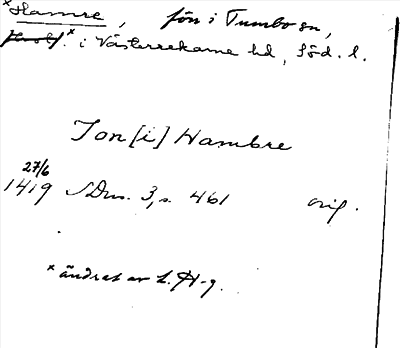 ˣHamre, fsn i Tumbo sn,
ˣ i Västerrekarne hd, Söd. l.
Jon [i] Hambre
27/6
1419 SDns. 3, s. 461 orig.
ˣ ändrat av L. H-g.